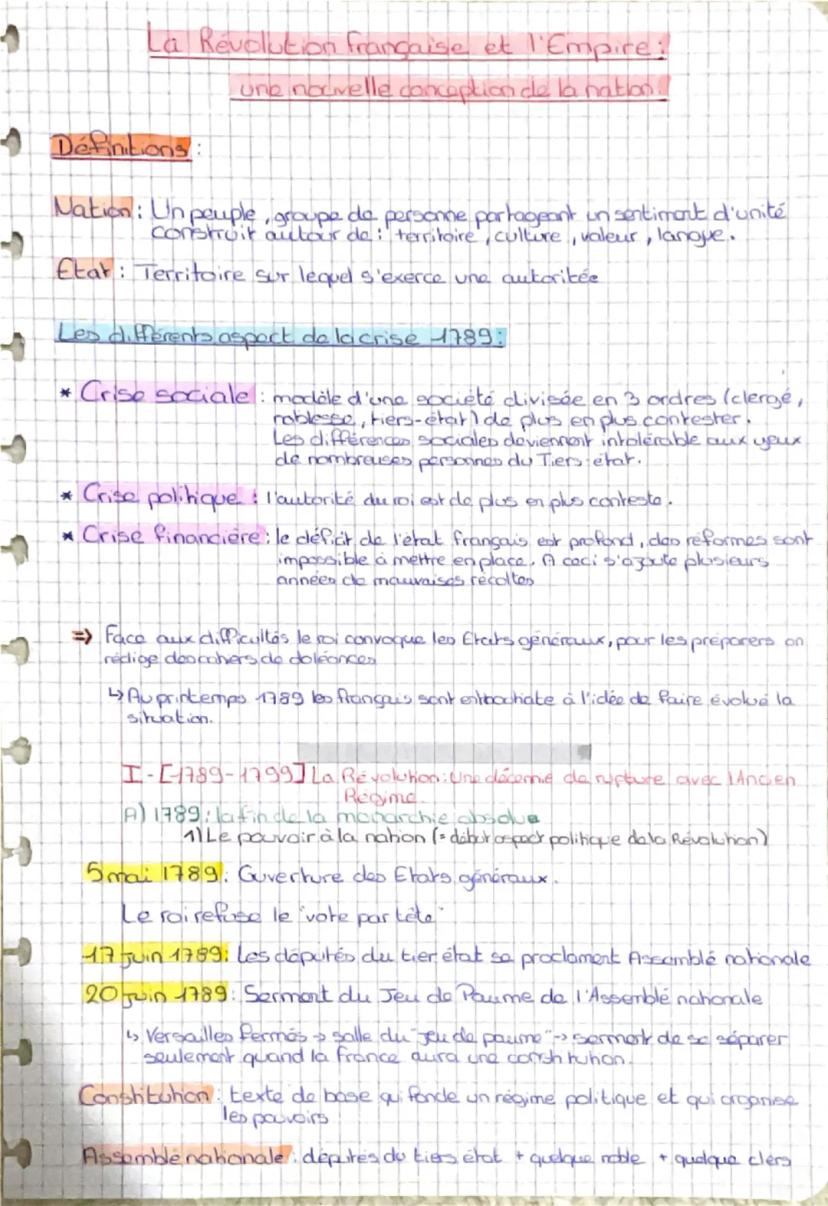 La Révolution française et l'Empire :
une nouvelle conception de la nation.
Définitions :
Nation : Un peuple, groupe de personne partageant un sentiment d'unité
construit autour de : territoire, culture, valeur, langue.
Etat : Territoire sur lequel s'exerce une autoritée
Les différents aspect de la crise 1789 :
* Crise sociale : modèle d'une société divisée en 3 ordres (clergé,
noblesse, tiers-état) de plus en plus contester.
Les différences sociales deviennent intolérable aux yeux
de nombreuses personnes du Tiers-état.
* Crise politique : l'autorité du roi est de plus en plus conteste.
* Crise financière : le déficit de l'état français est profond, des réformes sont
impossible à mettre en place. A ceci s'ajoute plusieurs
années de mauvaises récoltes
=> Face aux difficultés le roi convoque les Etats généraux, pour les préparers on
rédige des cahers de doléances
↳ Au printemps 1789 les français sont à l'idée de faire évolué la
situation.
I - [1789-1799] La Révolution : Une décennie de rupture avec l'Ancien
Régime.
A) 1789 : la fin de la monarchie absolue
1) Le pouvoir à la nation (= début aspect politique de la Révolution)
5 mai 1789 : Ouverture des Etats généraux.
Le roi refuse le "vote par tête"
17 juin 1789 : Les députés du tier état se proclament Assemblé nationale
20 juin 1789 : Serment du Jeu de Paume de l'Assemblé nationale
↳ Versailles fermés → salle du "jeu de paume" → serment de se séparer
seulement quand la france aura une constitution.
Constitution : texte de base qui fonde un régime politique et qui organise
les pouvoirs
Assemblé nationale : députés du tiers état + quelque noble + quelque clers